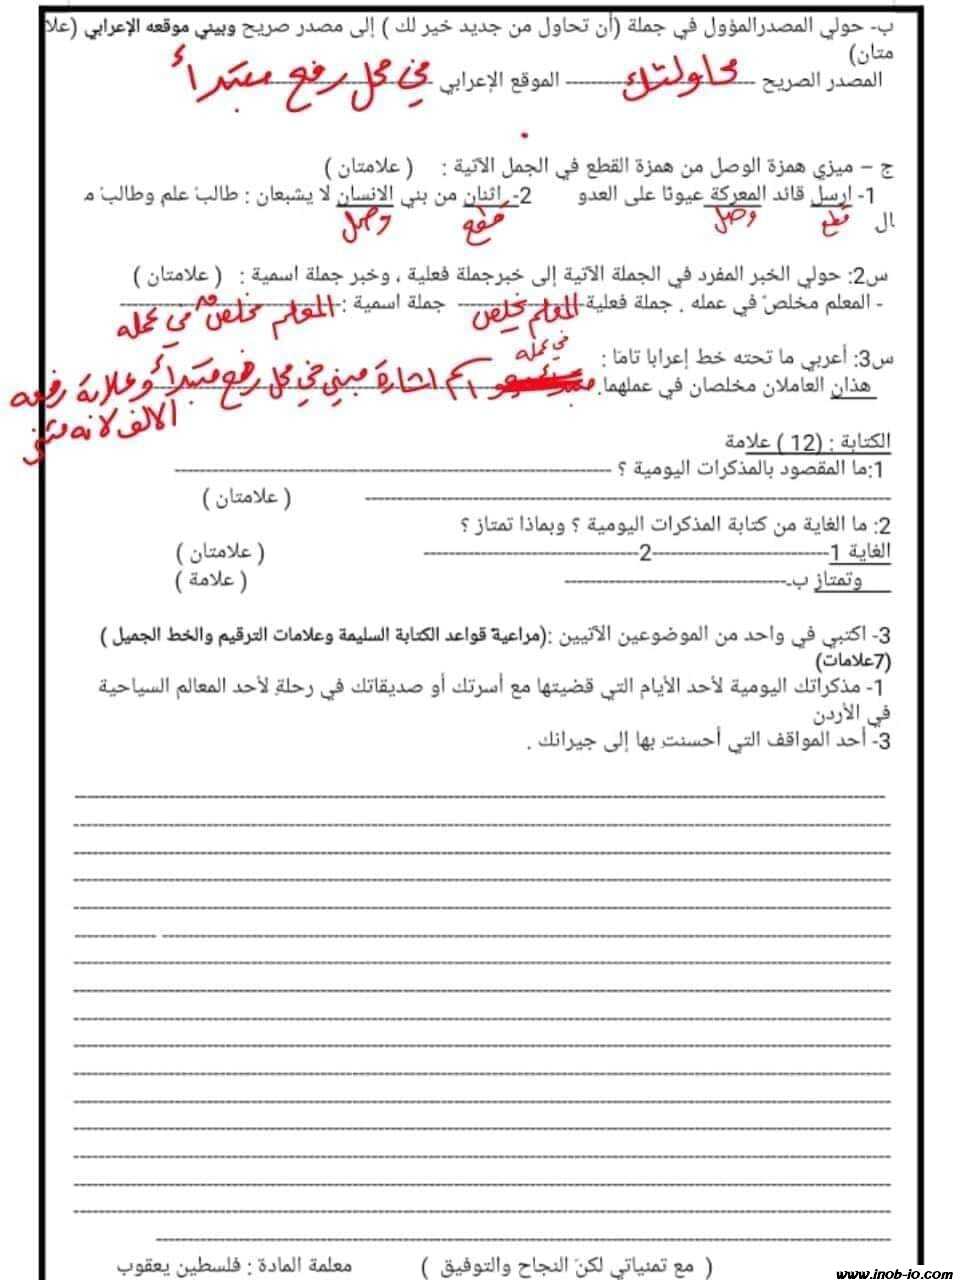 ب- حولي المصدرالمؤول في جملة (أن تحاول من جديد خير لك ) إلى مصدر صريح وبيني موقعه الإعرابي (علا
متان)
المصدر الصريح محاولتك الموقع الإعرابي في محل رفع مبتدأ
ج – ميزي همزة الوصل من همزة القطع في الجمل الآتية : ( علامتان )
1- ارسل قائد المعركة عيونًا على العدو 2- اثنان من بني الانسان لا يشبعان : طالبُ علم وطالبُ م
ال
قطع وصل قطع وصل
س2: حولي الخبر المفرد في الجملة الآتية إلى خبرجملة فعلية ، وخبر جملة اسمية : ( علامتان )
- المعلم مخلصٌ في عمله . جملة فعلية المعلم يخلص جملة اسمية : المعلم مخلص في عمله
في عمله
س3: أعربي ما تحته خط إعرابا تاما :
هذان العاملان مخلصان في عملهما. اسم اشارة مبني في محل رفع مبتدأ وعلامة رفعه
الالف لانه مثنى
الكتابة : (12 ) علامة
1:ما المقصود بالمذكرات اليومية ؟
( علامتان )
2: ما الغاية من كتابة المذكرات اليومية ؟ وبماذا تمتاز ؟
الغاية 1 2 ( علامتان )
وتمتاز بـ ( علامة )
3- اكتبي في واحد من الموضوعين الآتيين :(مراعية قواعد الكتابة السليمة وعلامات الترقيم والخط الجميل )
(7علامات)
1- مذكراتك اليومية لأحد الأيام التي قضيتها مع أسرتك أو صديقاتك في رحلةٍ لأحد المعالم السياحية
في الأردن
3- أحد المواقف التي أحسنتِ بها إلى جيرانك .
( مع تمنياتي لكنَ النجاح والتوفيق ) معلمة المادة : فلسطين يعقوب
www.inob-jo.com